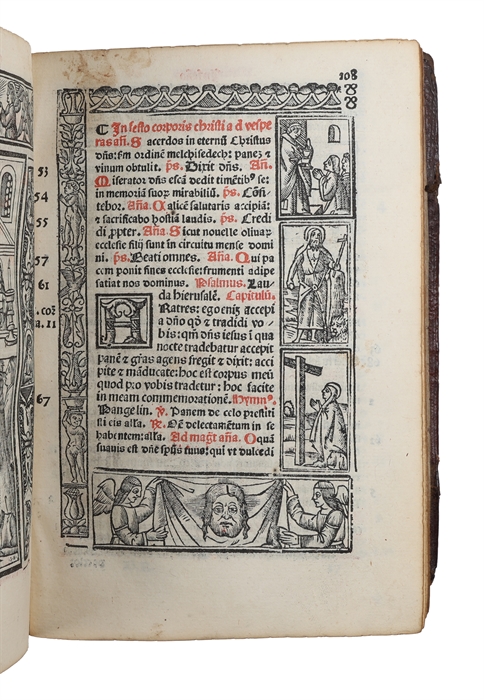 108
53
54
55
57
61
.coꝛ̄
a.11
67
¶ In festo corporis christi a d vespe
ras añ. Sacerdos in eternū Christus
dñs: ẜm ordinē melchisedech: panē ⁊
vinum obtulit. p̄s. Dixit dñs. Añ.
Miserator dñs escā dedit timētibꝰ se: in
in memoriā suoꝝ mirabiliū. p̄s. Cōfi
tebor. Aña. Calicē salutaris accipiā: ⁊
⁊ sacrificabo hostiā laudis. p̄s. Credi
di ꝓpter. Aña. Sicut nouelle oliuaꝝ
ecclesie filij sunt in circuitu mense dom
ini. p̄s. Beati omnes. Aña. Qui pa
cem ponit fines ecclesie: frumenti adipe
satiat nos dominus. Psalmus. Lau
da hierusalē. Capitulū.
FRatres: ego eniz accepi
a dño qđ ⁊ tradidi vo
bis: qm̄ dñs iesus ī qua
nocte tradebatur accepit
panē ⁊ grās agens fregit ⁊ dixit: acci
pite ⁊ māducate: hoc est corpus meū
quod pro vobis tradetur: hoc facite
in meam commemorationē. Hymnꝰ.
Pange lin. ℣. Panem de celo prestiti
sti eis alla. ℟. Oē delectamētum in se
habentem: alla. Ad magt̄ aña. O quā
suauis est dñe spūs tuus: qui vt dulcedi